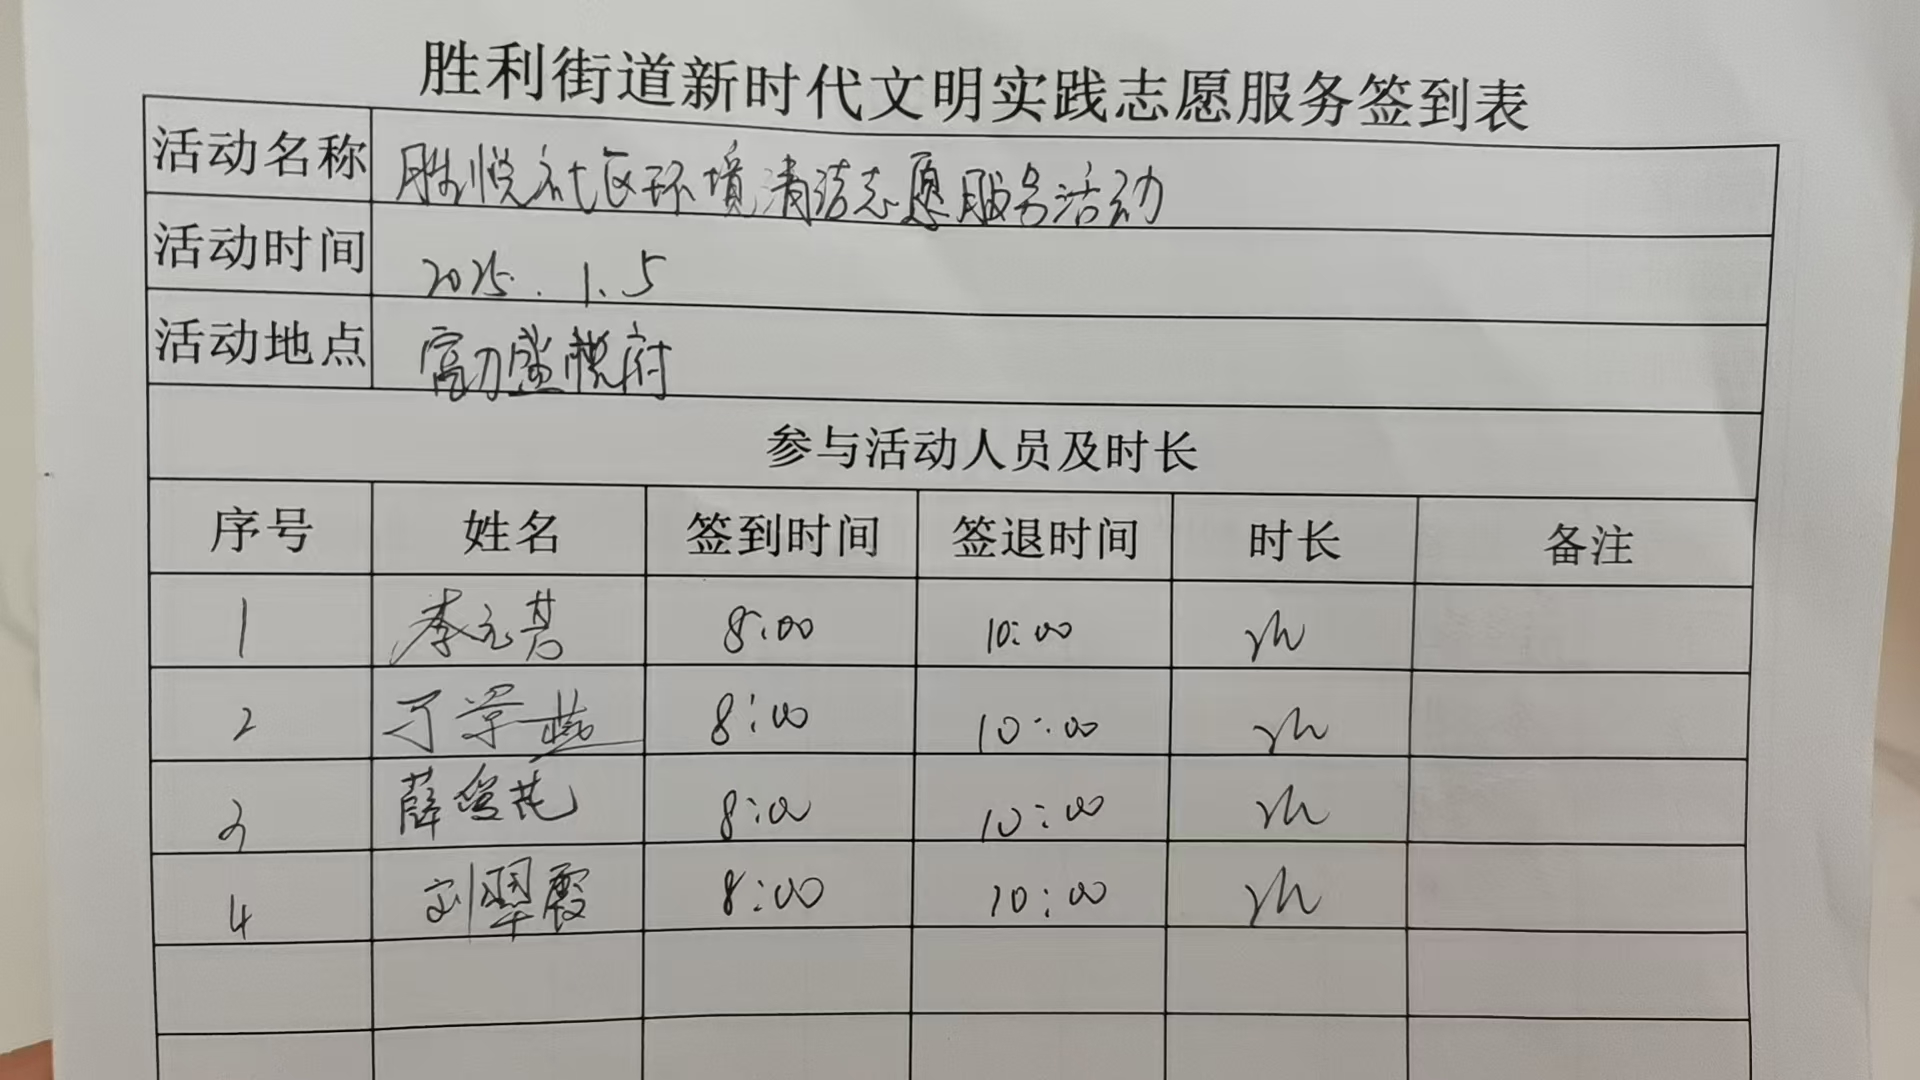 胜利街道新时代文明实践志愿服务签到表
活动名称 胜悦社区环境清洁志愿服务活动
活动时间 2025.1.5
活动地点 富力盛悦府
参与活动人员及时长
序号 姓名 签到时间 签退时间 时长 备注
1 李元 8:00 10:00 2h
2 丁学燕 8:00 10:00 2h
3 薛俊花 8:00 10:00 2h
4 刘翠霞 8:00 10:00 2h